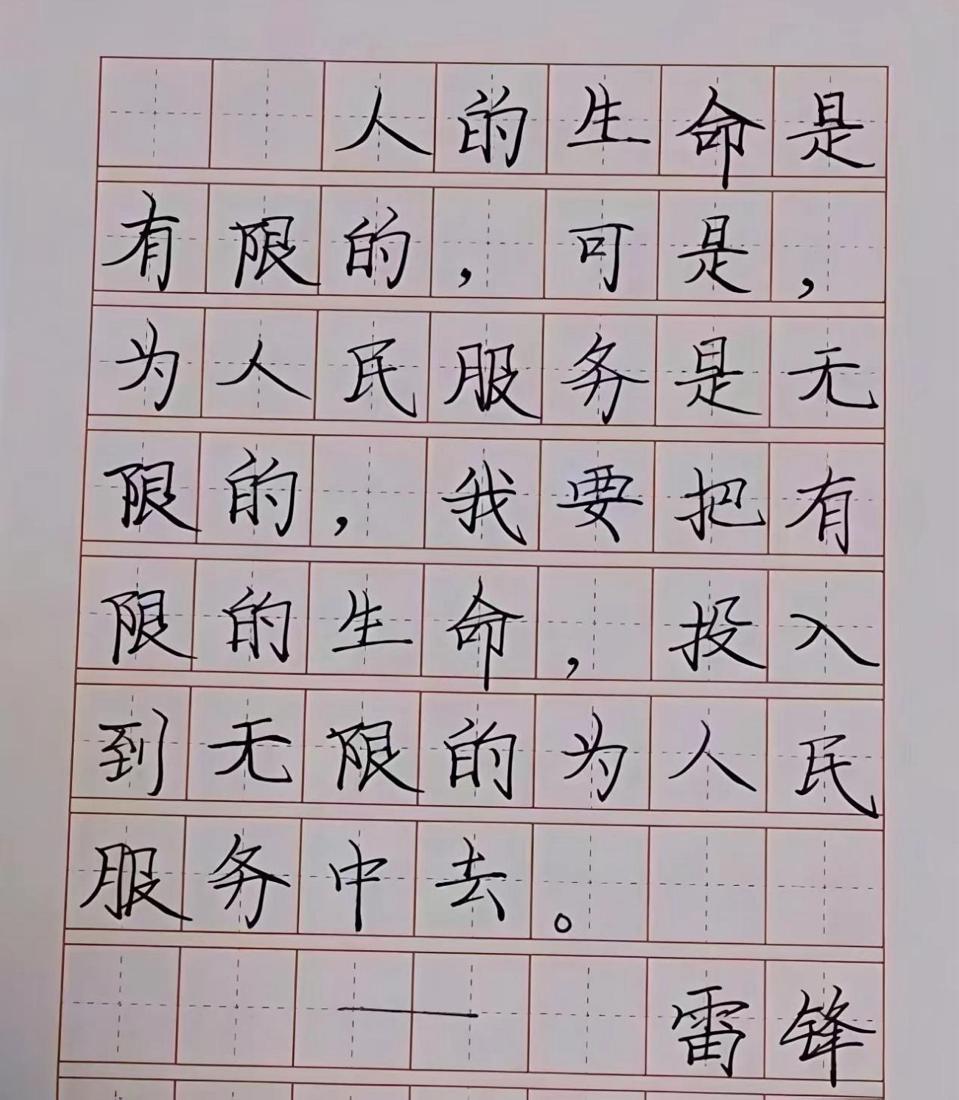 人的生命是
有限的，可是，
为人民服务是无
限的，我要把有
限的生命，投入
到无限的为人民
服务中去。
——雷锋